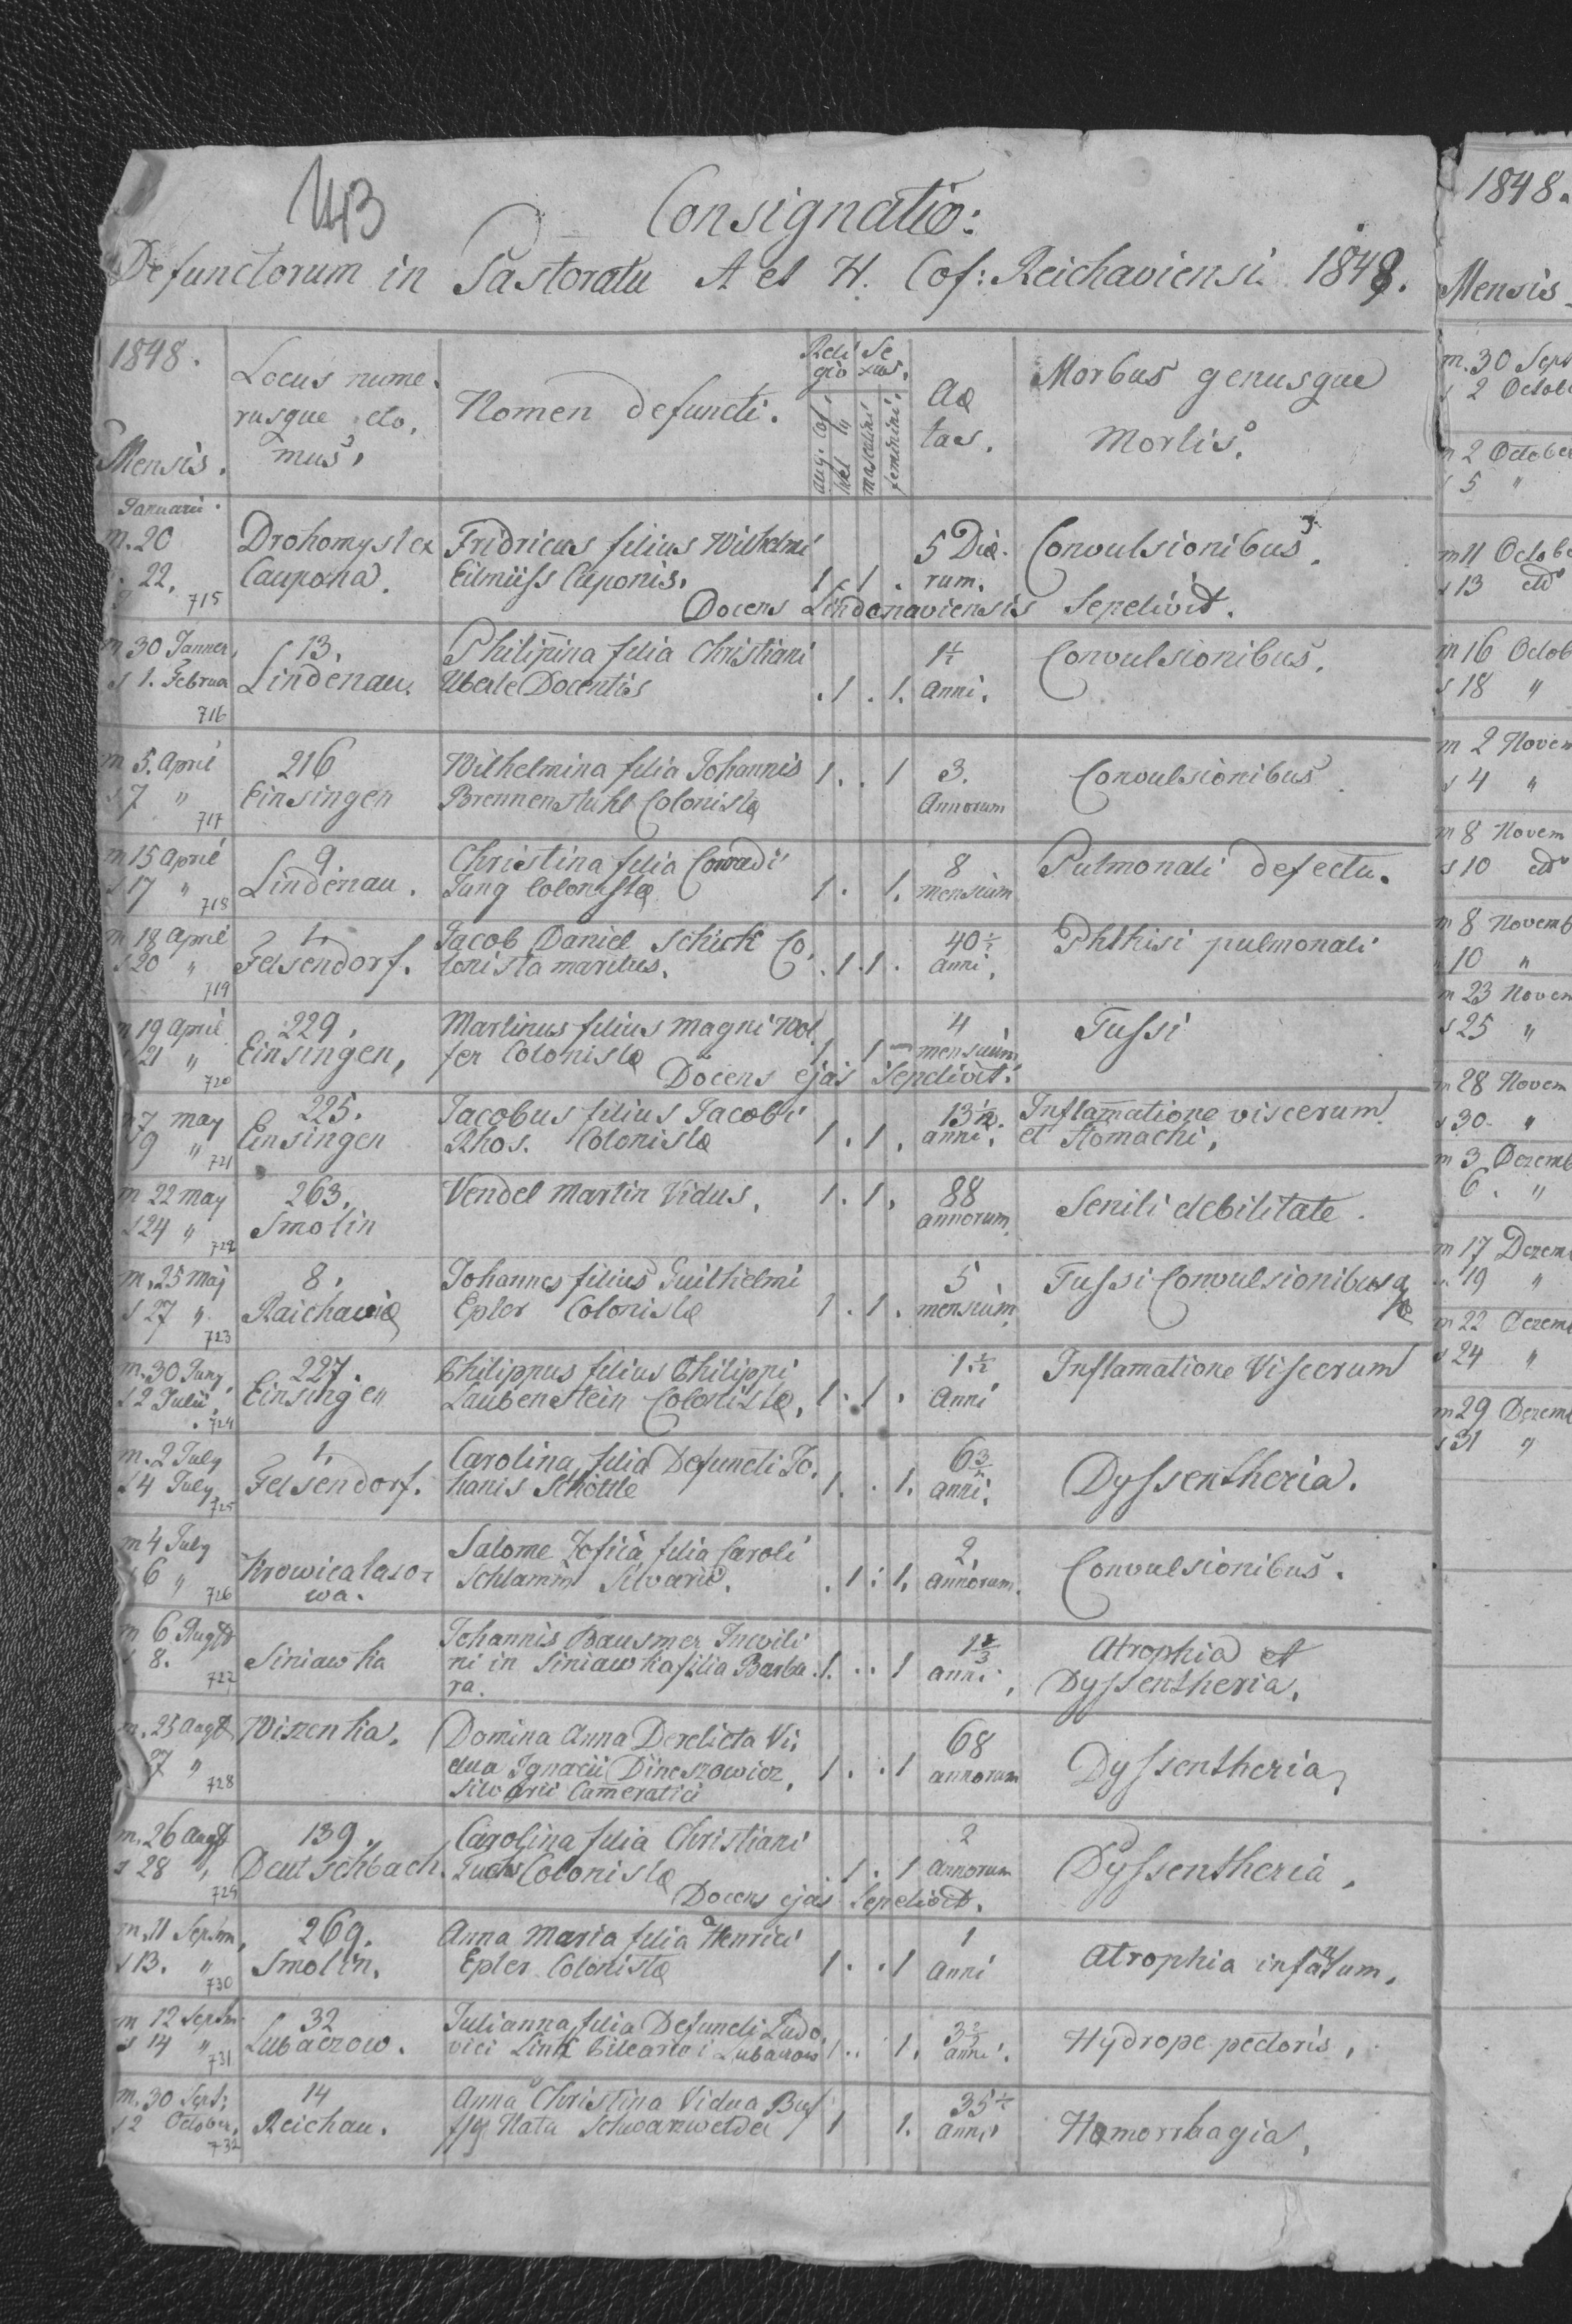 143
Consignatio:
Defunctorum in Pastoratu A et H. Cof: Reichaviensi 1848.
1848.
Mensis.
Locus nume-
rusque do,
mus,
Nomen defuncti.
Reli
gio
Se
xus.
aug. Cof
hel
masculini
feminini.
Ae
tas.
Morbus genusque
Mortis.
Januarii.
m. 20
22.
715
Drohomysl ex
Caupona.
Fridricus filius Wilhelmi
Eilmüss Cuponis.
1 . 1 .
5 Die-
rum.
Convulsionibus.
Docens Lindenaviensis Sepelivit.
m 30 Janner,
s 1. Februa
716
13.
Lindenau.
Philippina filia Christiani
Uberle Docentis
. 1 . 1.
1½
anni.
Convulsionibus.
m 5. April
s 7 "
717
216
Einsingen
Wilhelmina filia Johannis
Brennenstuhl Colonistæ
1 . . 1
3.
Annorum
Convulsionibus
m 15 April
s 17 "
718
9.
Lindenau.
Christina filia Conradi
Jung Colonistæ
1 . 1.
8
mensium
Pulmonali defectu.
m 18 April
s 20 "
719
1,
Felsendorf.
Jacob Daniel Schick Co,
lonista maritus.
. 1 . 1 .
40½
anni,
Phthisi pulmonali
m 19 April
21 "
720
229.
Einsingen,
Martinus filius Magni Wol
fer Colonistæ
1 . 1 –
4
mensium
Tussi
Docens ejas Sepelivit.
7 May
9 "
721
225.
Einsingen
Jacobus filius Jacobi
Rhos. Colonistæ
1 . 1 .
13½.
anni,
Inflamatione viscerum
et stomachi,
m 22 may
s 24 "
722
263.
Smolin
Vendel Martin Vidus,
1 . 1.
88
annorum
Senili debilitate.
m. 25 Maj
s 27 "
723
8.
Raichaviæ
Johannes filius Guilhelmi
Epler Colonistæ
1 . 1 .
5
mensium
Tussi Convulsionibusq
m. 30 Juny
s 2 Julii,
724
227.
Einsingen
Philippus filius Philippi
Laubenstein Colonistæ,
1 . 1 .
1½
Anni
Inflamatione Viscerum
m. 2 July
s 4 July
725
1,
Felsendorf.
Carolina filia Defuncti Jo,
hanis Schöttle
1 . . 1.
anni,
Dyssentheria.
m 4 July
6 "
726
Krowicalaso-
wa.
Salome Zofiia filia Caroli
Schlamm Silvarii.
. 1 : 1.
2,
annorum.
Convulsionibus.
m 6 Augst
8.
722
Siniawka
Johannis Bausmer Inwili
ni in Siniawka filia Barba
ra.
1. . . 1
anni,
Atrophia et
Dyssentheria,
m. 25 Augst
7 "
728
Wizenka.
Domina Anna Derelicta Vi,
dua Ignacii Dineszowicz,
Silvarii Cameratici
1 . . 1
68
annorum
Dyssentheria,
m. 26 Augst
s 28 "
729
139.
Deutschbach.
Carolina filia Christiani
Fuchs Colonistæ
. 1 . 1
2
Annorum
Dyssentheria,
Docens ejas Sepelivit.
m. 11 Septm,
s 13. "
730
269.
Smolin,
Anna Maria filia Henrici
Epler Colonistæ
1 . . 1
1
Anni
Atrophia infantum,
m 12 Septm
s 14 "
731
32
Lubaczow.
Julianna filia Defuncti Ludo,
vici Link
1 . . 1.
anni.
Hydrope pectoris,
m. 30 Sept;
s 2 October,
732
14
Reichau.
Anna Christina Vidua
Nata
1 1.
35½
Anni
Hæmorrhagia,
1848.
Mensis
m. 30 Sept
s 2 Octob
m 2 October
s 5 "
m 11 Octobe
s 13 do
m 16 Octob
s 18 "
m 2 Novem
s 4 "
m 8 Novem
s 10 do
m 8 Novemb
10 "
m 23 Novem
s 25 "
m 28 Novem
s 30 "
m 3 Dezemb
6. "
m 17 Dezem
19 "
m 22 Dezem
s 24 "
m 29 Dezem
s 31 "